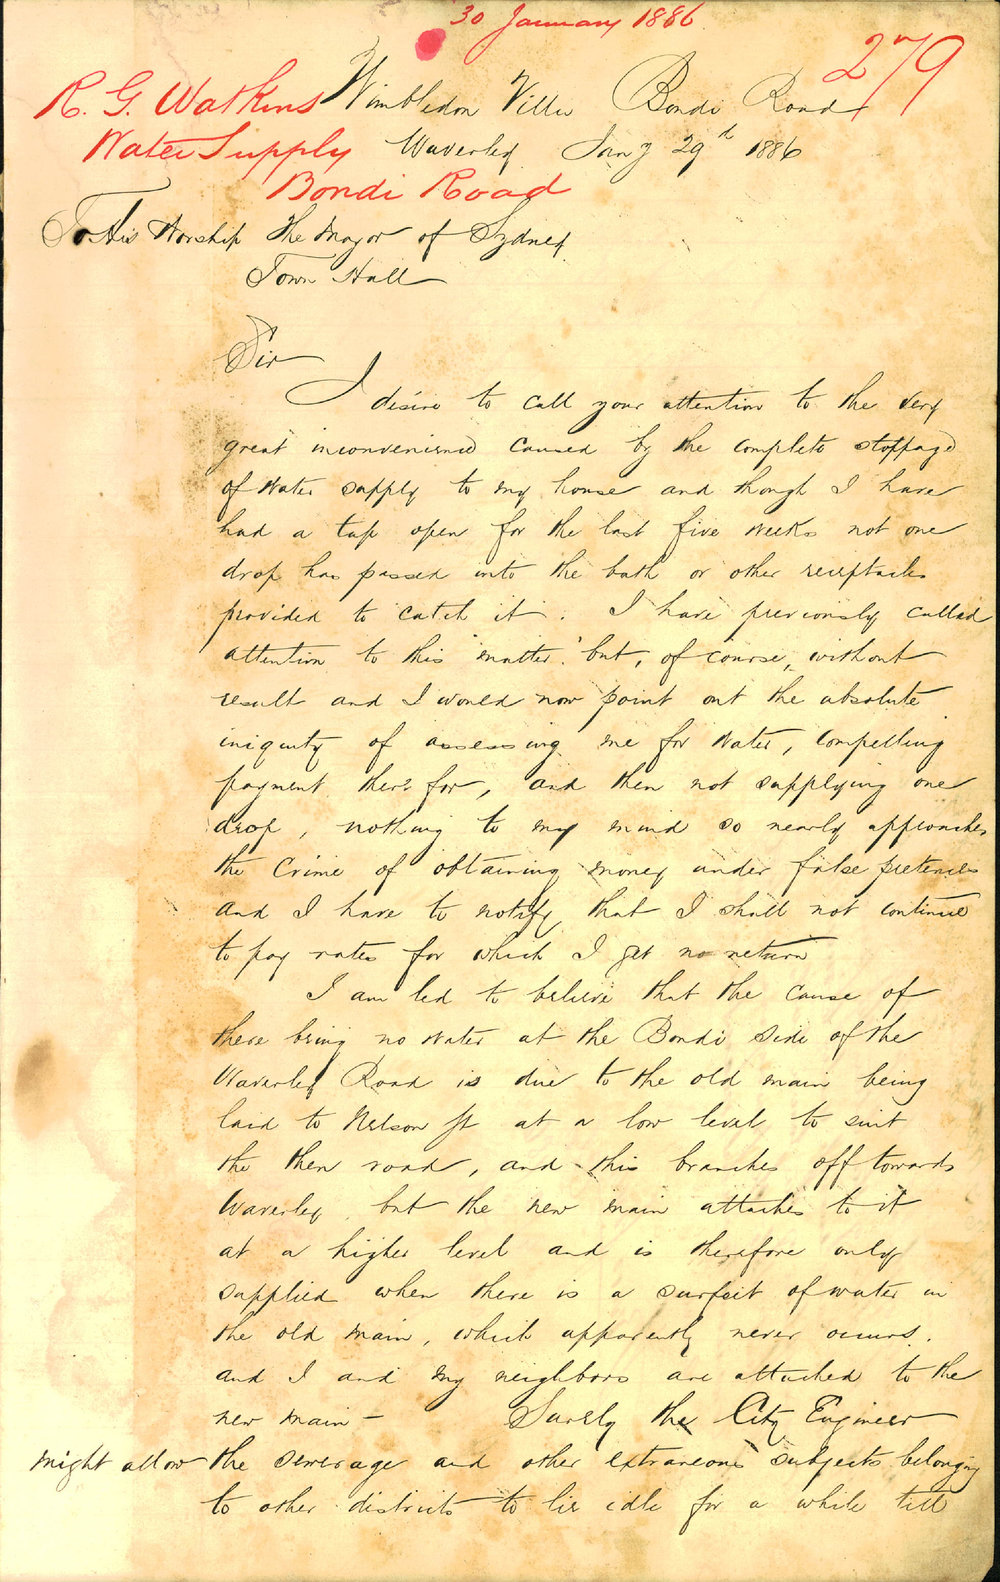 30 January 1886
279
R. G. Watkins
Water Supply
Bondi Road
Wimbledon Villa Bondi Road
Waverley Jany 29th 1886
To His Worship The Mayor of Sydney
Town Hall
Sir
I desire to call your attention to the very
great inconvenience caused by the complete stoppage
of Water supply to my house and though I have
had a tap open for the last five weeks not one
drop has passed into the bath or other receptacles
provided to catch it. I have previously called
attention to this matter but, of course, without
result and I would now point out the absolute
iniquity of assessing me for Water, compelling
payment there for, and then not supplying one
drop, nothing to my mind so nearly approaches
the Crime of obtaining money under false pretences
and I have to notify that I shall not continue
to pay rates for which I get no return
I am led to believe that the cause of
there being no water at the Bondi side of the
Waverley Road is due to the old main being
laid to Nelson St at a low level to suit
the then road, and this branches off towards
Waverley but the new main attaches to it
at a higher level and is therefore only
supplied when there is a surfeit of water in
the old main, which apparently never occurs.
and I and my neighbors are attached to the
new main - Surely the City Engineer
might allow the sewerage and other extraneous subjects belonging
to other districts to lie idle for a while till